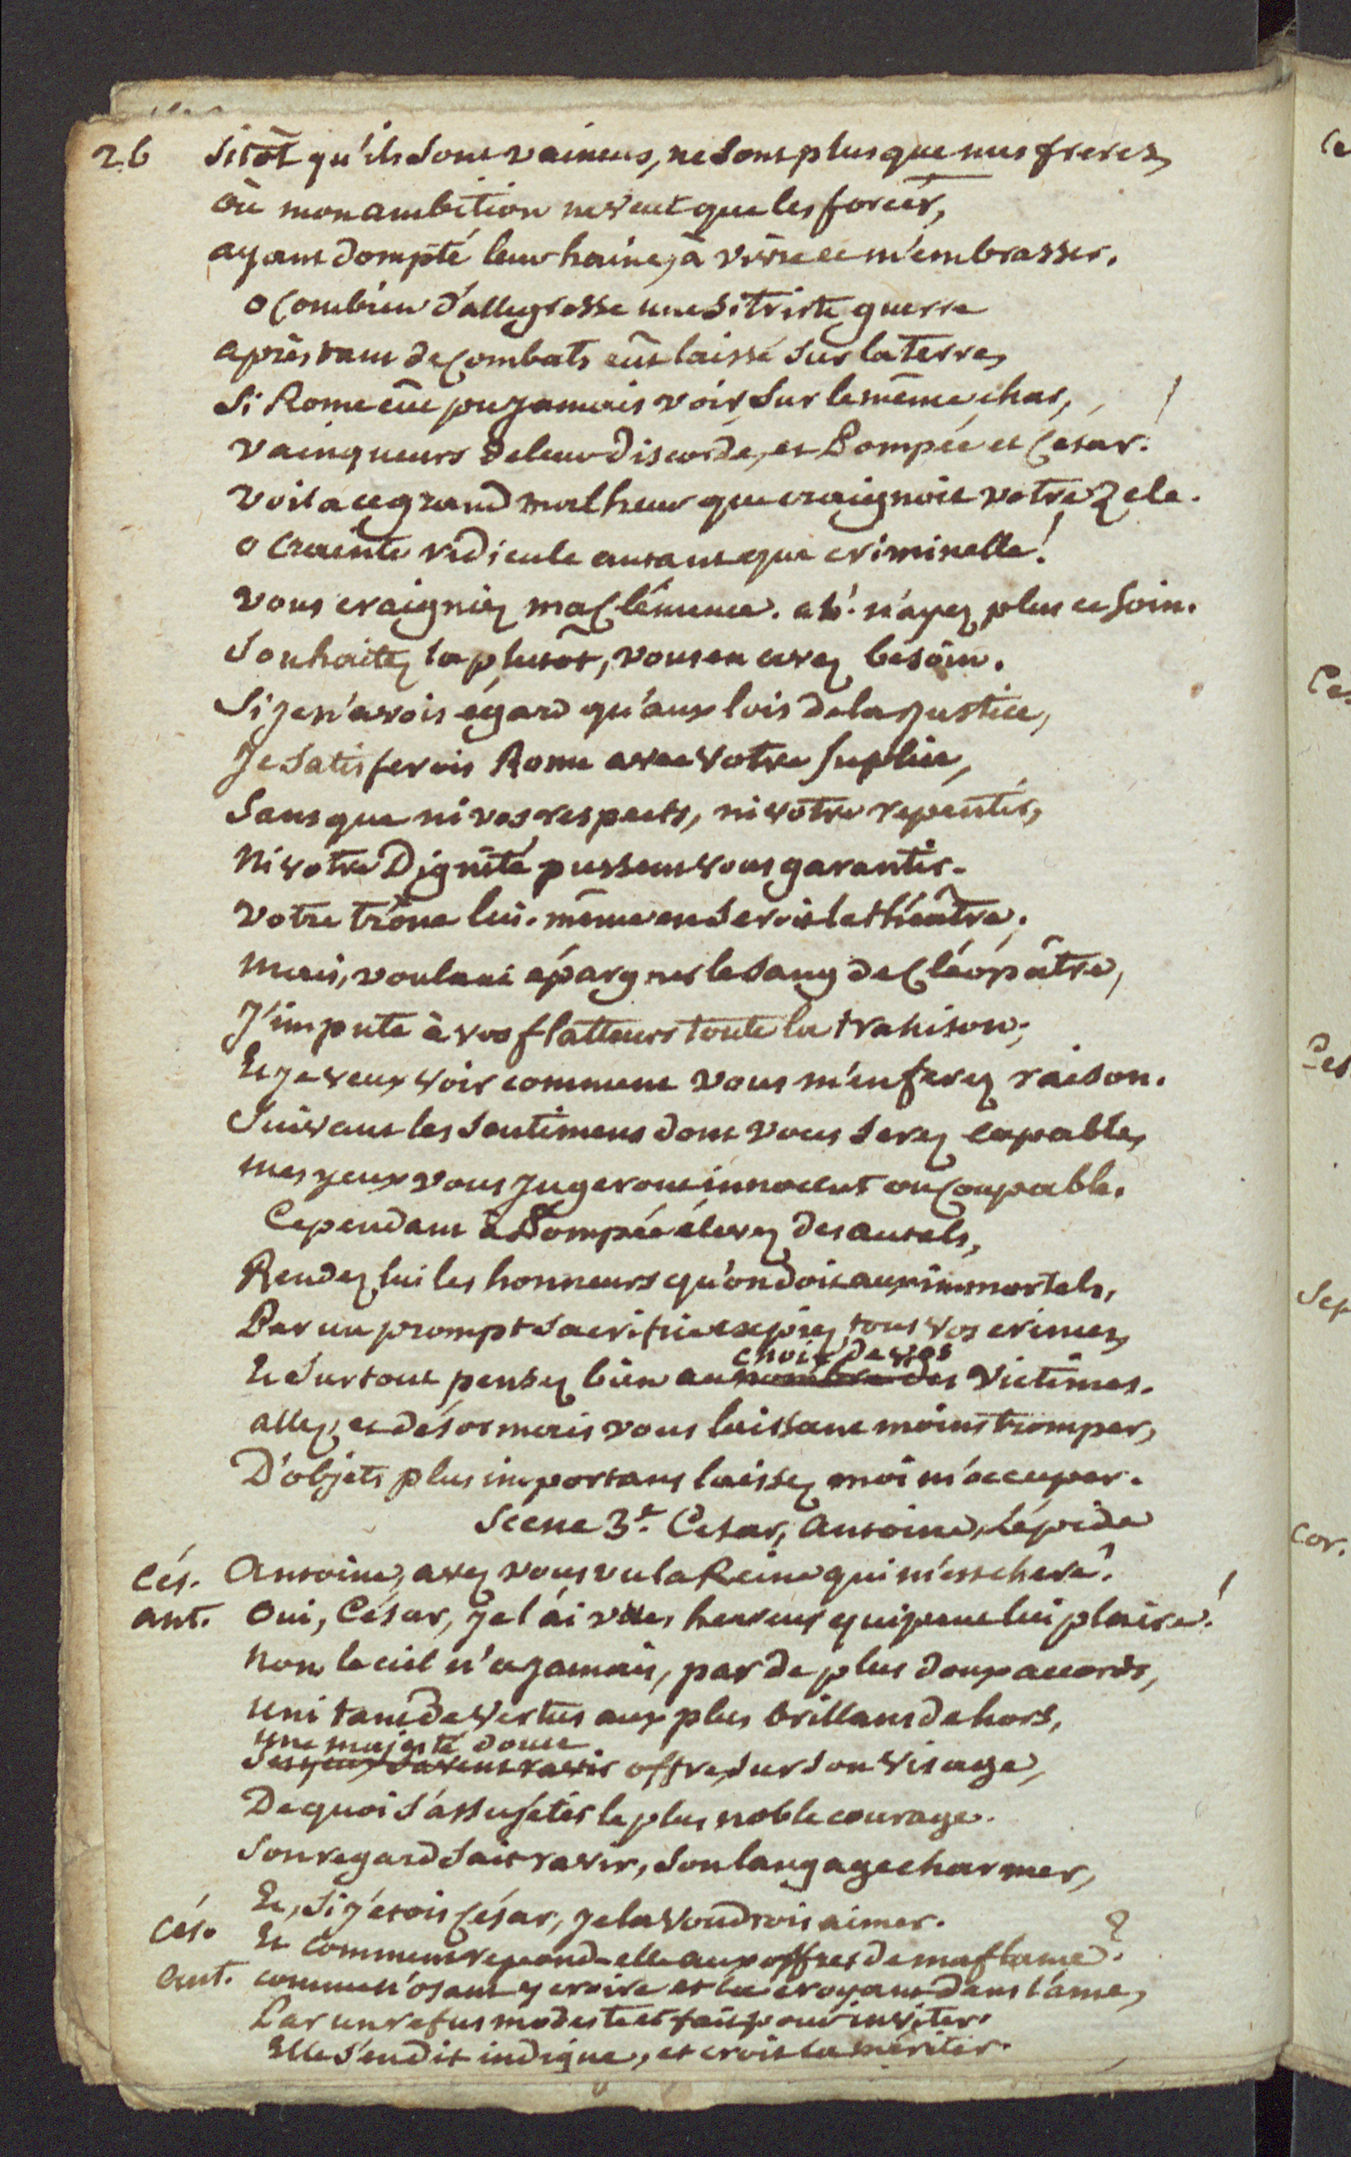 26 Sitôt qu'ils sont vaincus, ne sont plus que mes freres,
où mon ambition ne veut que les forcer,
ayant dompté leur haine, à vivre et m'embrasser.
o Combien d'allegresse une si triste guerre
après tant de Combats eût laissé sur la terre,
Si Rome eût pu jamais voir, sur le même char,
vainqueurs de leur discorde, et Pompée et Cesar!
Voila ce grand malheur que craignoit votre zele.
o Crainte ridicule autant que criminelle!
Vous craigniez ma Clémence. ah! n'ayez plus ce soin.
Souhaitez la plutôt, vous en avez besoin.
Si je n'avois égard qu'aux lois de la justice,
Je satisferois Rome avec votre suplice,
Sans que ni vos respects, ni votre repentir,
Ni votre Dignité pussent vous garantir.
Votre trône lui-même en seroit le théâtre.
Mais, voulant épargner le sang de Cléopâtre,
J'impute à vos flatteurs toute la trahison,
Et je veux voir comment vous m'en ferez raison.
Suivant les sentimens dont vous serez capable,
Mes yeux vous jugeront innocent ou Coupable.
Cependant à Pompée élevez des autels,
Rendez lui les honneurs qu'on doit aux immortels,
Par un prompt sacrifice expiez tous vos crimes,
choix de vos
Et surtout pensez bien au nombre des Victimes.
allez, et désormais vous laissant moins tromper,
D'objets plus importans laissez moi m'occuper.
Scene 3e. Cesar, Antoine, Lépide
Cés. Antoine, avez vous vu la Reine qui m'est chere?
ant. Oui, César, je l'ai vue, heureux qui peut lui plaire!
Non le ciel n'a jamais, par de plus doux accords,
Uni tant de vertus aux plus brillans dehors,
une majesté douce
Ses yeux savent ravir offre, sur son visage,
De quoi s'assujetir le plus noble courage.
Son regard sait ravir, son langage charmer,
Et, si j'étois César, je la voudrois aimer.
Cés. Et comment repond-elle aux offres de ma flame?
ant. comme n'osant y croire et la croyant dans l'ame,
Par un refus modeste et fait pour inviter.
Elle s'en dit indigne, et croit la mériter.